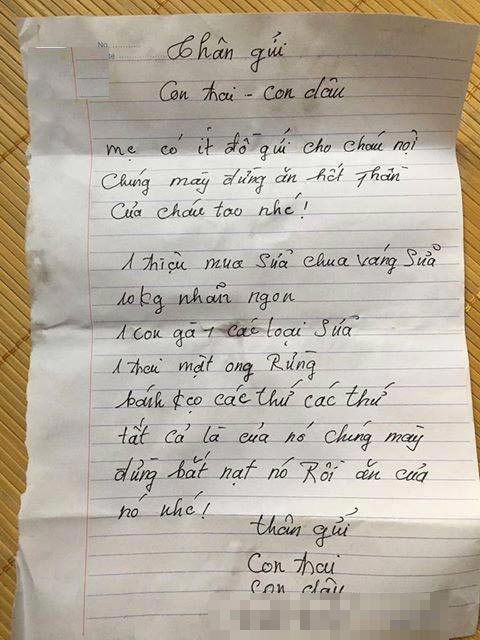 No. ..........
Thân gửi
Con trai - con dâu
mẹ có ít đồ gửi cho cháu nội
Chúng mày đừng ăn hết phần
Của cháu tao nhé!
1 triệu mua sữa chua váng sữa
10kg nhãn ngon
1 con gà + các loại sữa
1 chai mật ong Rừng
bánh kẹo các thứ các thứ
tất cả là của nó chúng mày
đừng bắt nạt nó Rồi ăn của
nó nhé!
thân gửi
Con trai
Con dâu